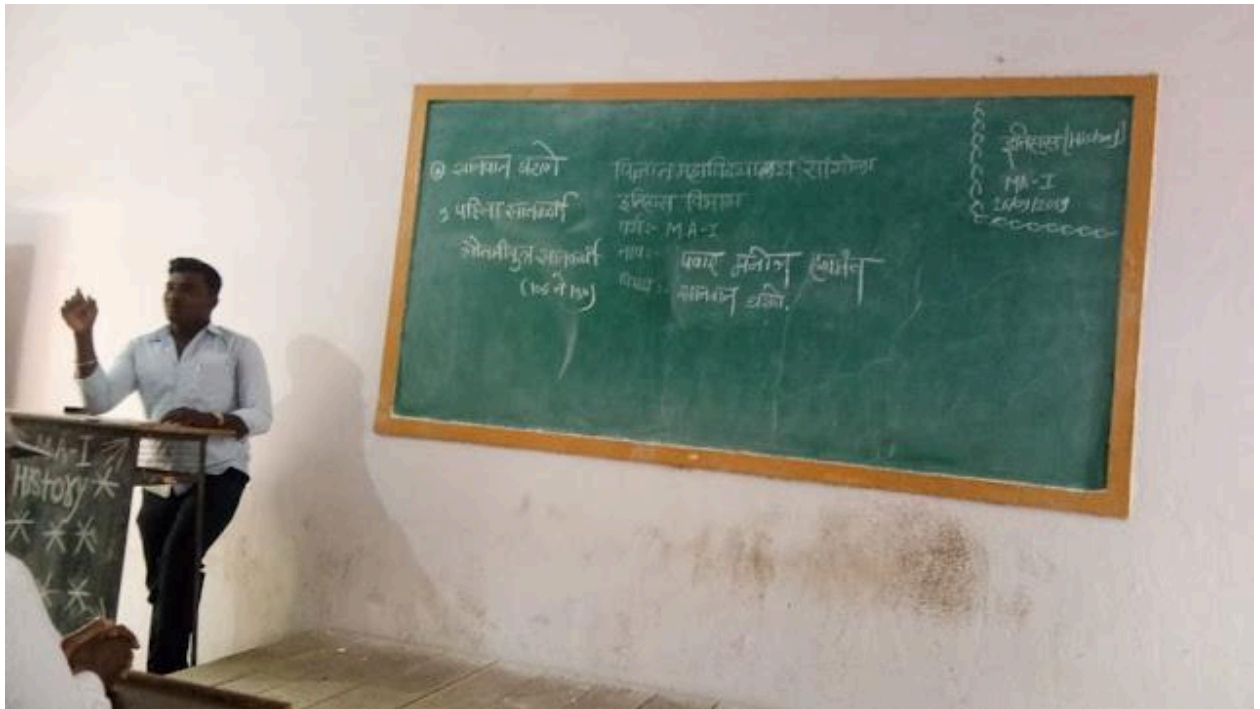 सातवाहन घराणे
१ पहिला सातकर्णी
गौतमीपुत्र सातकर्णी
(106 ते 130)
विज्ञान महाविद्यालय सांगोला
इतिहास विभाग
वर्ग:- MA-I
नाव:- पवार मनोज
विषय:-
इतिहास (History)
MA-I
MA-I
History